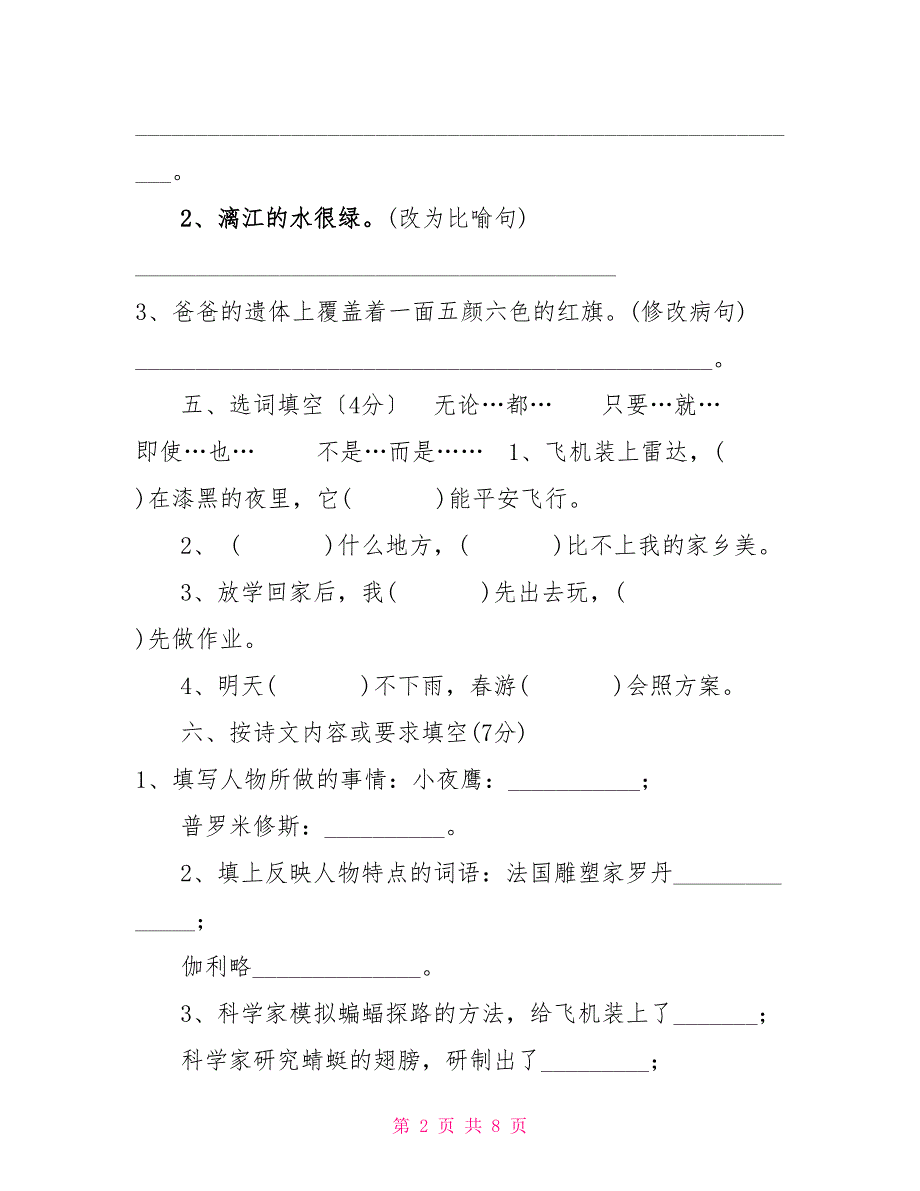 ______________________________________________________
___。
2、漓江的水很绿。(改为比喻句)
________________________________________
3、爸爸的遗体上覆盖着一面五颜六色的红旗。(修改病句)
________________________________________________。
五、选词填空〔4分〕 无论…都… 只要…就…
即使…也… 不是…而是…… 1、飞机装上雷达，(
)在漆黑的夜里，它( )能平安飞行。
2、 ( )什么地方，( )比不上我的家乡美。
3、放学回家后，我( )先出去玩，(
)先做作业。
4、明天( )不下雨，春游( )会照方案。
六、按诗文内容或要求填空(7分)
1、填写人物所做的事情：小夜鹰：___________；
普罗米修斯：__________。
2、填上反映人物特点的词语：法国雕塑家罗丹_________
_____；
伽利略______________。
3、科学家模拟蝙蝠探路的方法，给飞机装上了_______；
科学家研究蜻蜓的翅膀，研制出了_________；
第 2 页 共 8 页